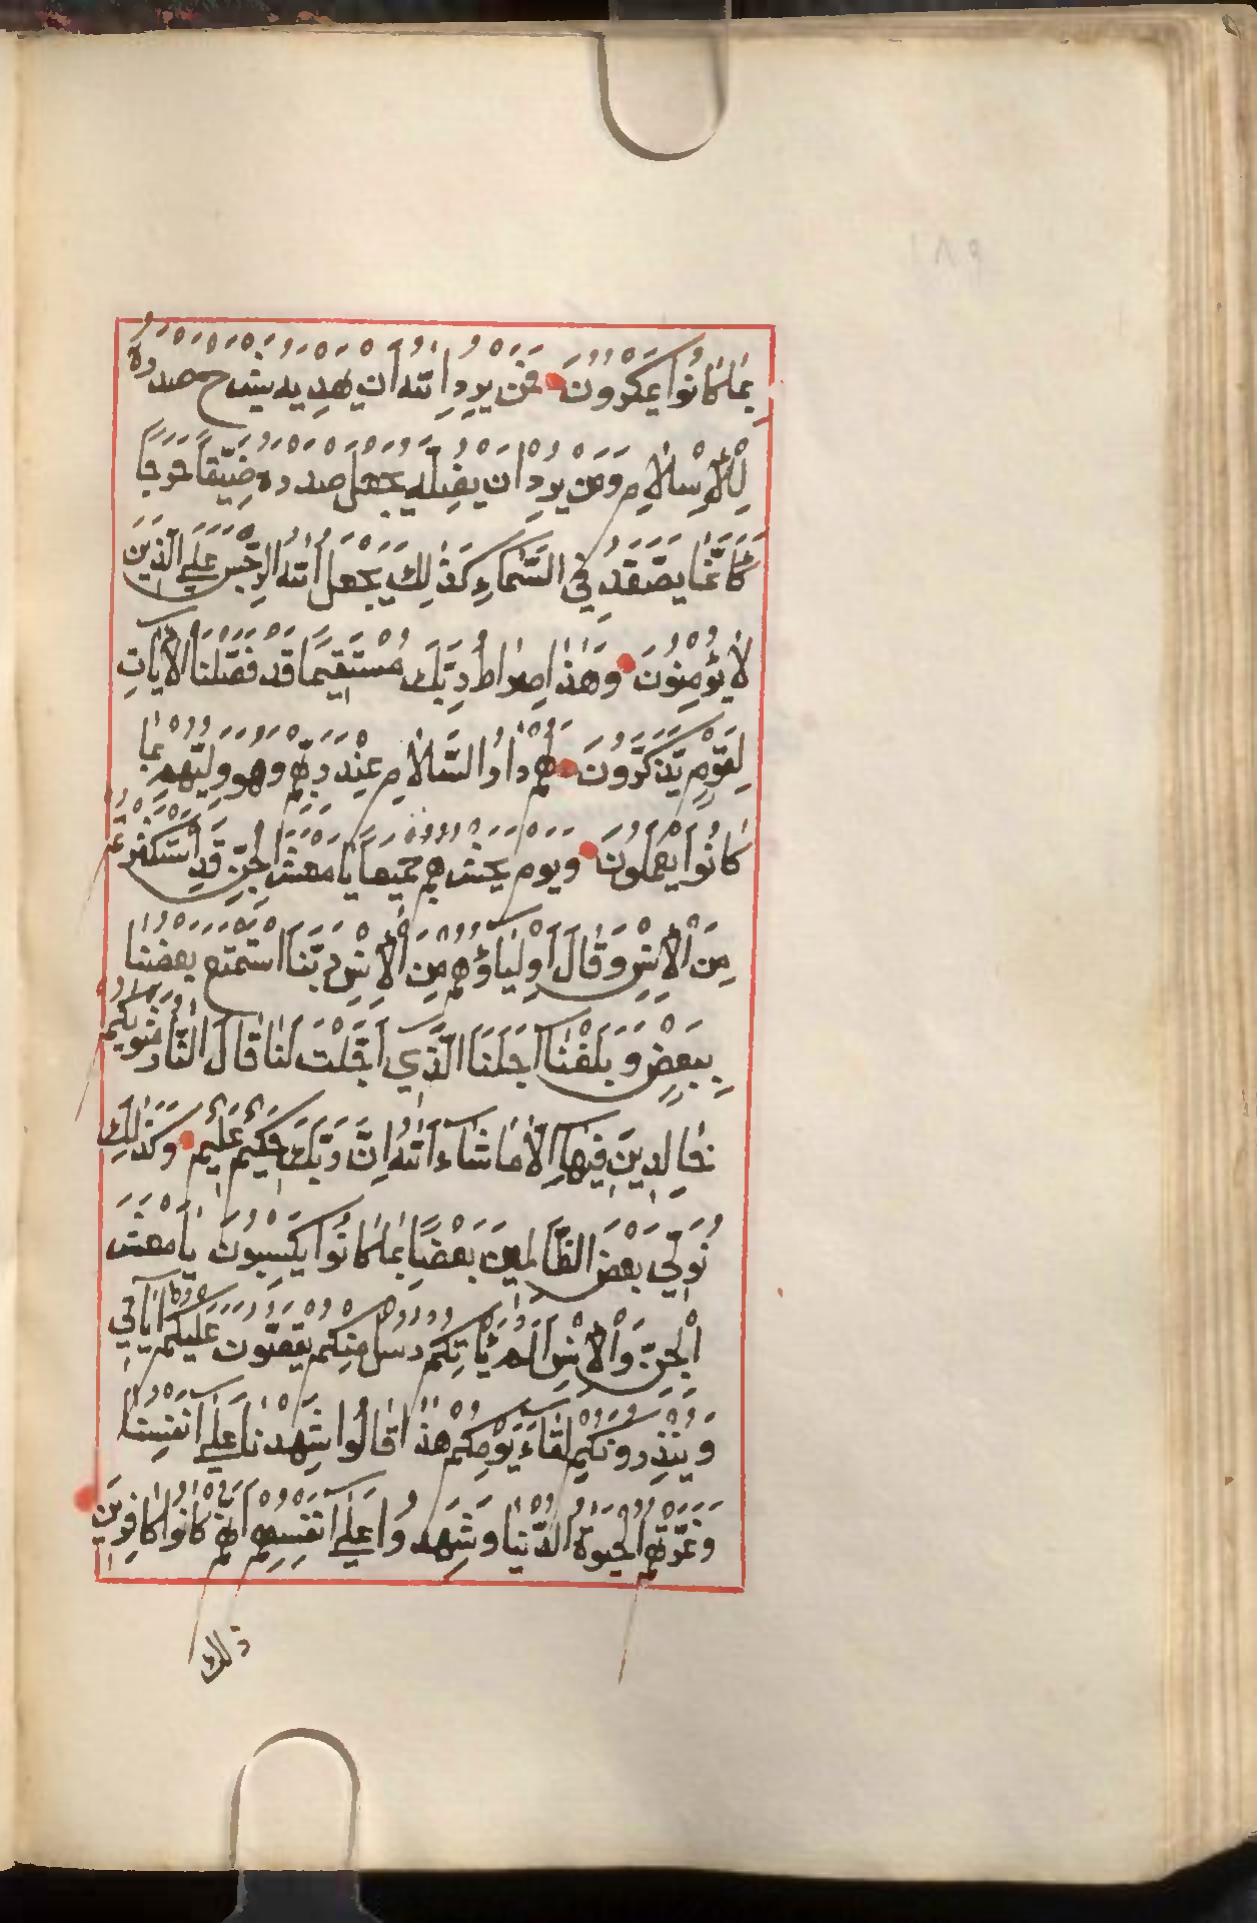 بِمَا كَانُوا يَمْكُرُونَ فَمَنْ يُرِدِ اللهُ اَنْ يَهْدِيَهُ يَشْرَحْ صَدْرَهُ
لِلْاِسْلَامِ وَمَنْ يُرِدْ اَنْ يُضِلَّهُ يَجْعَلْ صَدْرَهُ ضَيِّقًا حَرَجًا
كَاَنَّمَا يَصَّعَّدُ فِي السَّمَاءِ كَذٰلِكَ يَجْعَلُ اللهُ الرِّجْسَ عَلَي الَّذِينَ
لَا يُؤْمِنُونَ وَهٰذَا صِرَاطُ رَبِّكَ مُسْتَقِيمًا قَدْ فَصَّلْنَا الْاٰيَاتِ
لِقَوْمٍ يَذَّكَّرُونَ لَهُمْ دَارُ السَّلَامِ عِنْدَ رَبِّهِمْ وَهُوَ وَلِيُّهُمْ بِمَا
كَانُوا يَعْمَلُونَ وَيَوْمَ يَحْشُرُهُمْ جَمِيعًا يَا مَعْشَرَ الْجِنِّ قَدِ اسْتَكْثَرْتُمْ
مِنَ الْاِنْسِ وَقَالَ اَوْلِيَاؤُهُمْ مِنَ الْاِنْسِ رَبَّنَا اسْتَمْتَعَ بَعْضُنَا
بِبَعْضٍ وَبَلَغْنَا اَجَلَنَا الَّذِي اَجَّلْتَ لَنَا قَالَ النَّارُ مَثْوٰيكُمْ
خَالِدِينَ فِيهَا اِلَّا مَا شَاءَ اللهُ اِنَّ رَبَّكَ حَكِيمٌ عَلِيمٌ وَكَذٰلِكَ
نُوَلِّي بَعْضَ الظَّالِمِينَ بَعْضًا بِمَا كَانُوا يَكْسِبُونَ يَا مَعْشَرَ
الْجِنِّ وَالْاِنْسِ اَلَمْ يَأْتِكُمْ رُسُلٌ مِنْكُمْ يَقُصُّونَ عَلَيْكُمْ اٰيَاتِي
وَيُنْذِرُونَكُمْ لِقَاءَ يَوْمِكُمْ هٰذَا قَالُوا شَهِدْنَا عَلٰي اَنْفُسِنَا
وَغَرَّتْهُمُ الْحَيٰوةُ الدُّنْيَا وَشَهِدُوا عَلٰي اَنْفُسِهِمْ اَنَّهُمْ كَانُوا كَافِرِينَ
ذلك